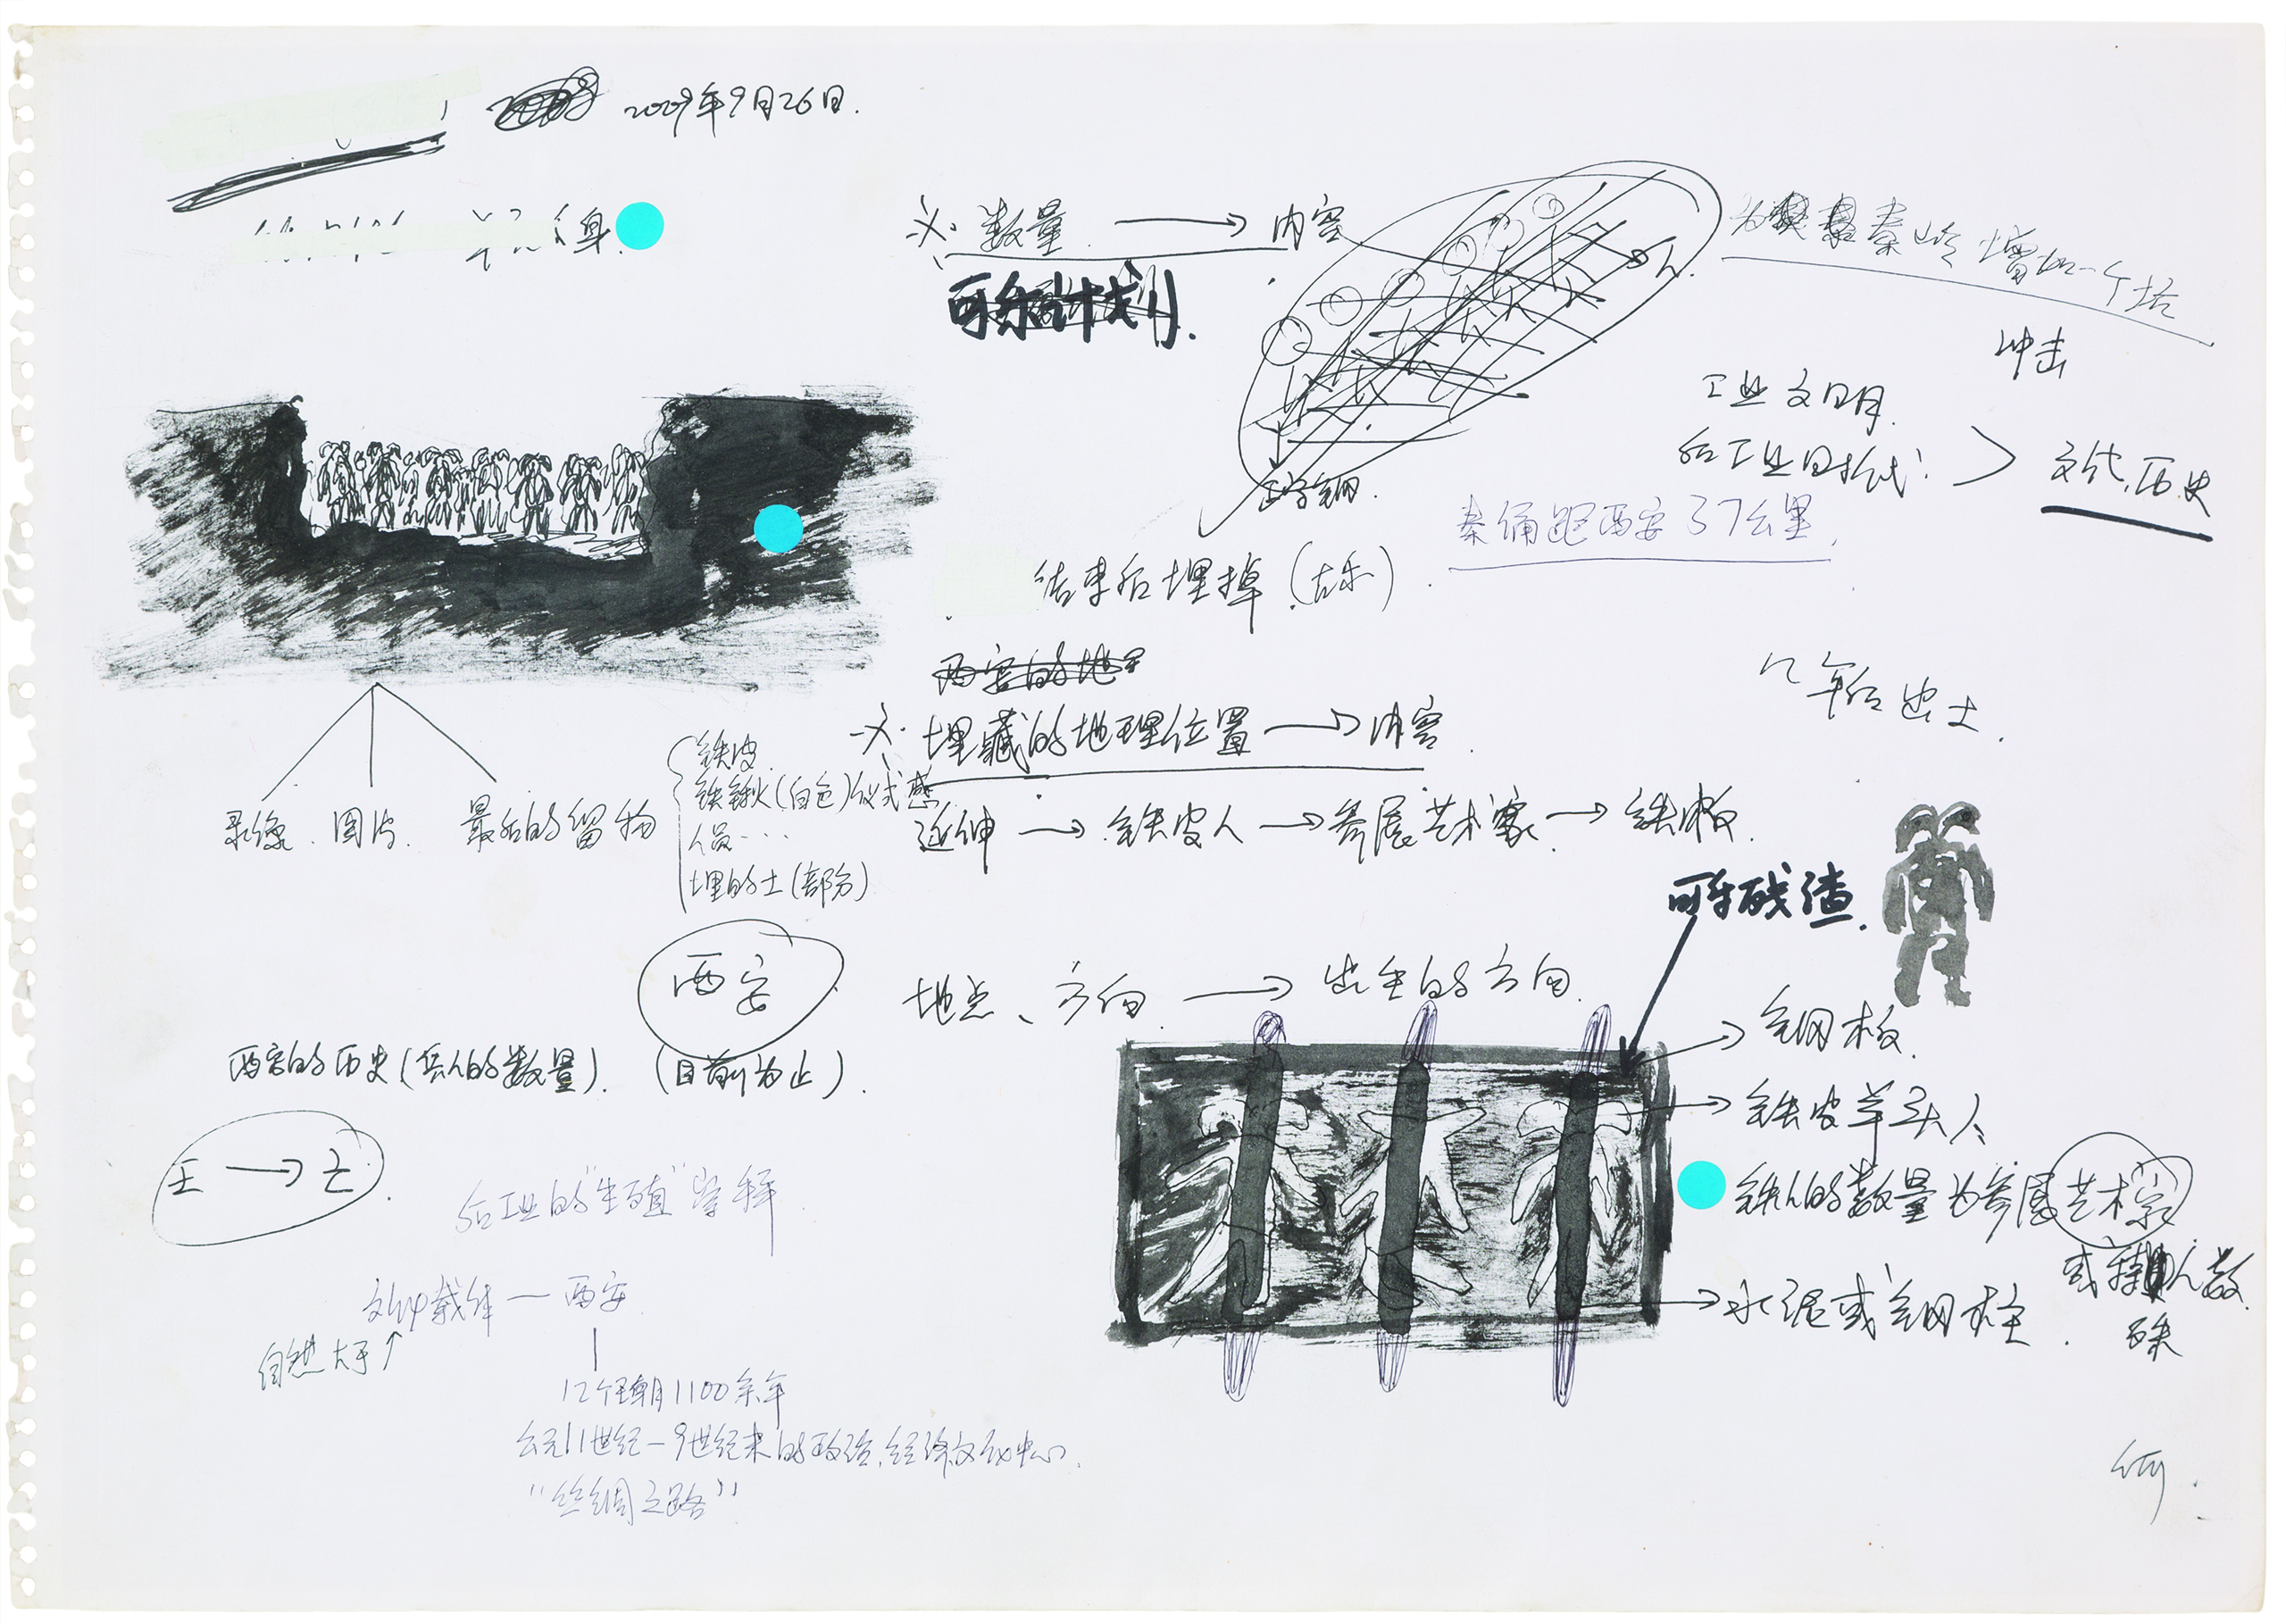 2009年9月26日.
数量 → 内容
可乐计划.
秦岭增加一个塔
冲击
工业文明
后工业时代
文化,历史
秦俑距西安37公里,
结束后埋掉(古乐).
西安的地
埋藏的地理位置 → 内容
几年后出土.
录像. 图片. 最后的留物
铁皮
铁锹(白色)仪式感
人员…
埋的土(部分)
延伸 → 铁皮人 → 参展艺术家 → 铁板.
可乐残渣.
西安
地点、方向 → 出生的方向.
钢板.
西安的历史(兵人的数量). (目前为止).
铁皮羊头人
王 → 亡.
铁人的数量为参展艺术家
后工业的"生殖"
水泥或钢柱.
载体 — 西安
自然大于
12个王朝1100余年
公元11世纪-9世纪末的政治,经济文化中心.
"丝绸之路"
何.